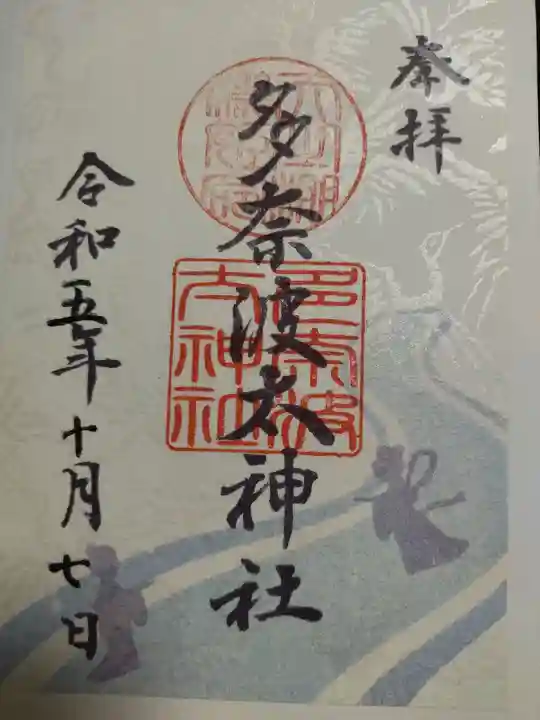 奉拝
多奈波太神社
多奈波太神社
令和五年十月七日